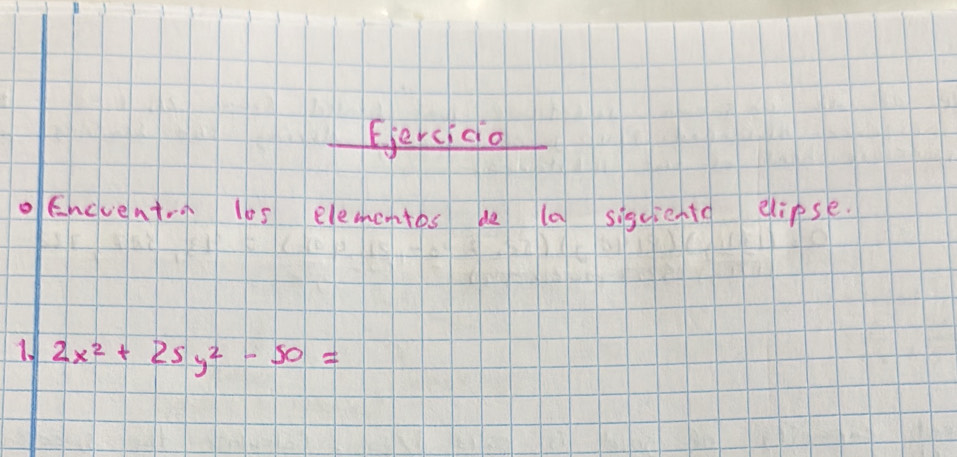 Ejercicio
• Encuentra los elementos de la siguiente elipse.
1. 2x² + 25y² - 50 =